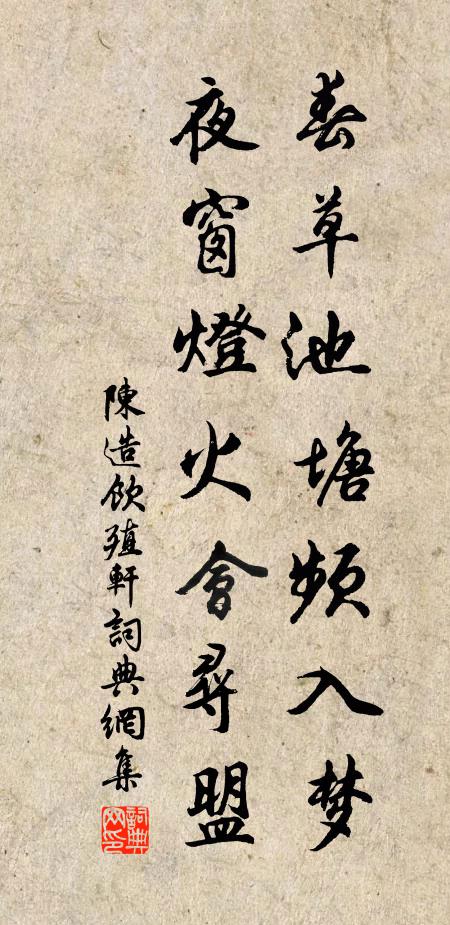 春草池塘頻入梦
夜窗燈火會尋盟
陳造飲殖軒詞典網集
詞典網印